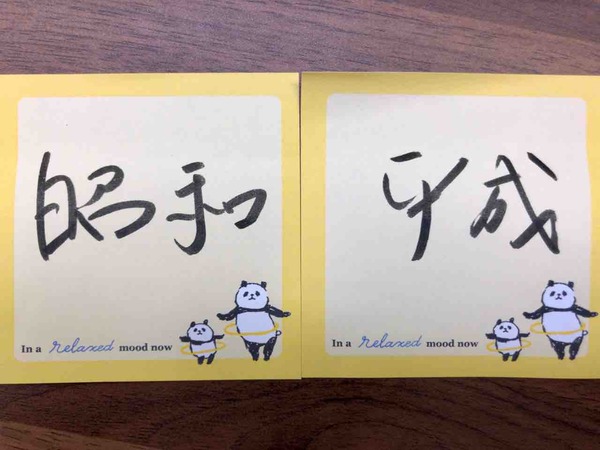 昭和
In a relaxed mood now
平成
In a relaxed mood now